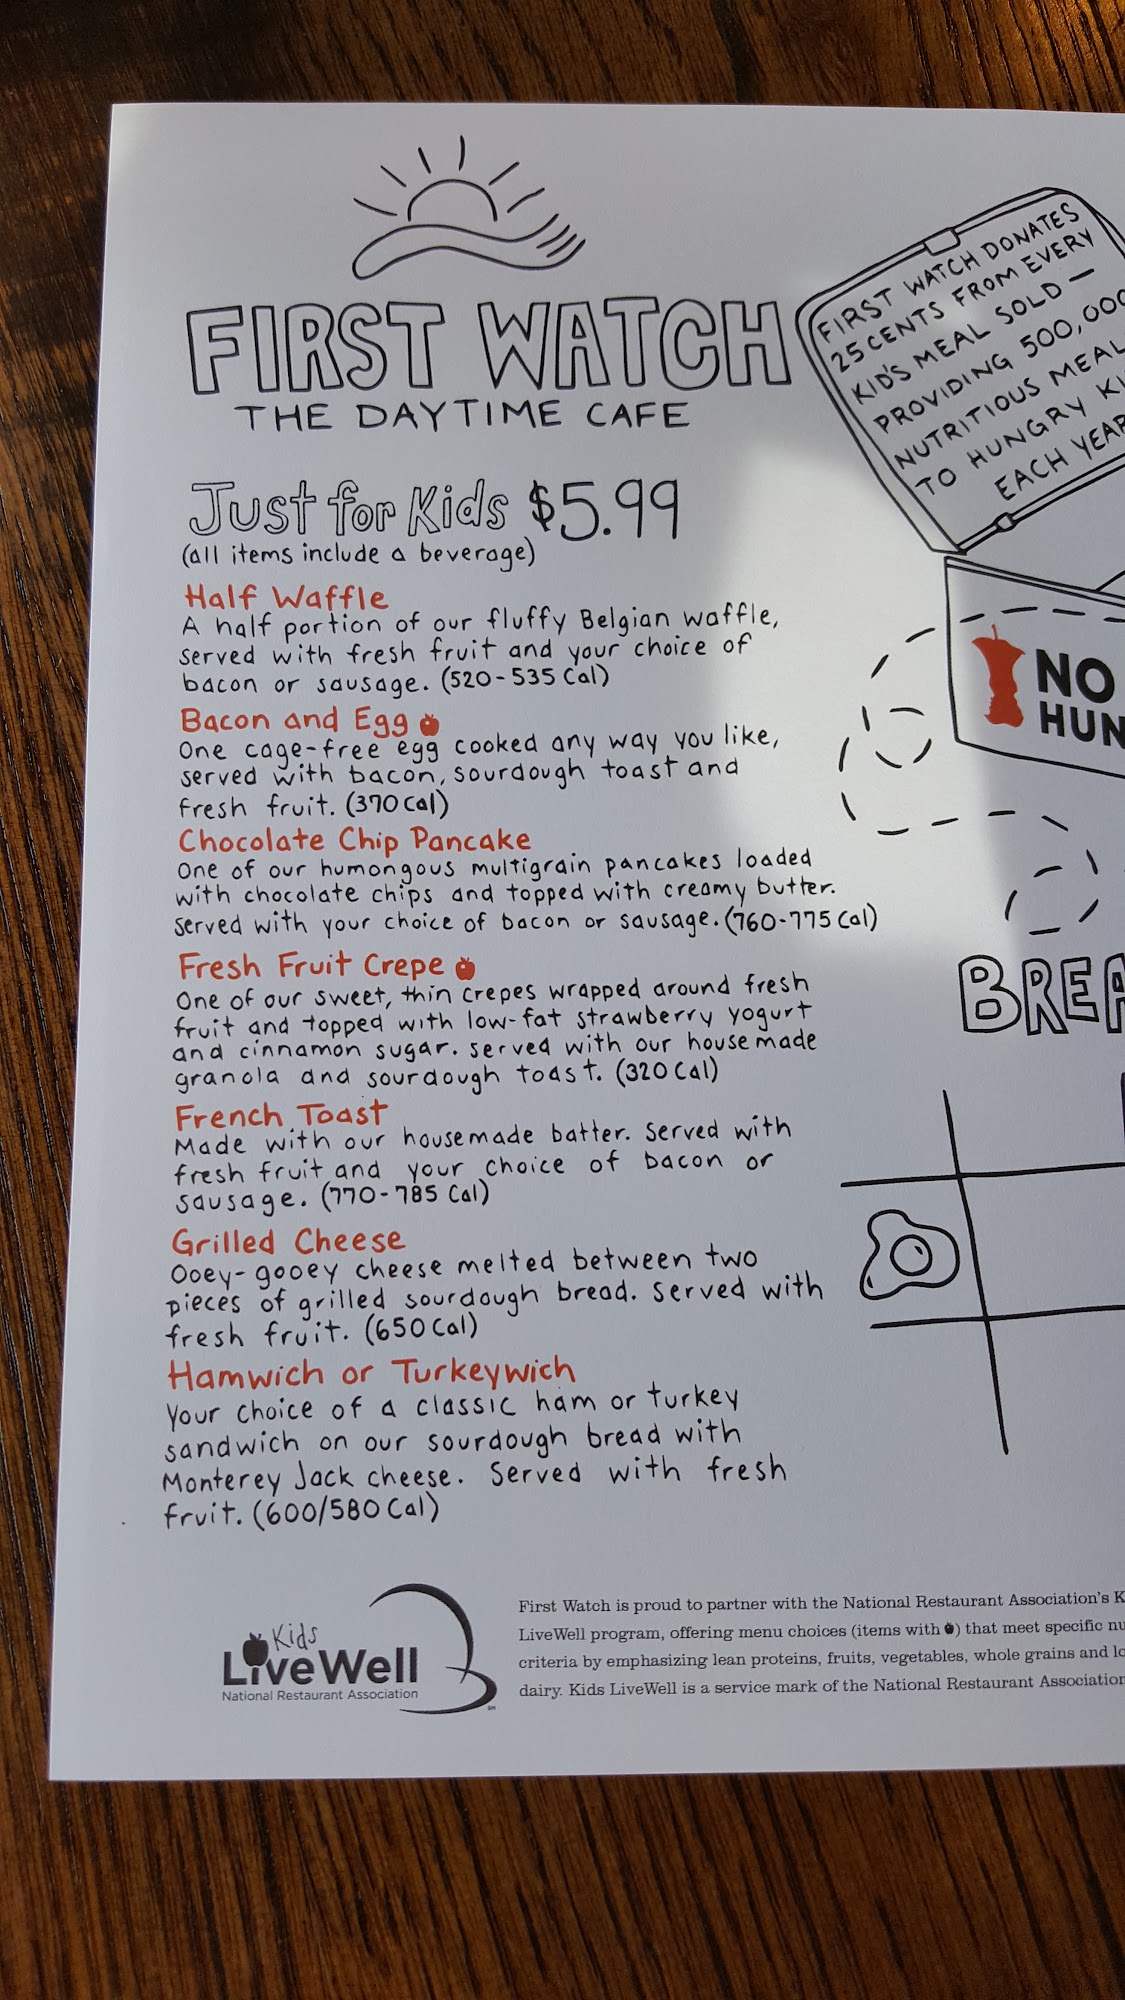 FIRST WATCH
THE DAYTIME CAFE
FIRST WATCH DONATES
25 CENTS FROM EVERY
KID'S MEAL SOLD —
PROVIDING 500,000
NUTRITIOUS MEAL
TO HUNGRY
EACH YEAR
Just for Kids $5.99
(all items include a beverage)
Half Waffle
A half portion of our fluffy Belgian waffle,
served with fresh fruit and your choice of
bacon or sausage. (520-535 Cal)
Bacon and Egg
One cage-free egg cooked any way you like,
served with bacon, sourdough toast and
fresh fruit. (370 Cal)
Chocolate Chip Pancake
One of our humongous multigrain pancakes loaded
with chocolate chips and topped with creamy butter.
Served with your choice of bacon or sausage. (760-775 Cal)
Fresh Fruit Crepe
One of our sweet, thin crepes wrapped around fresh
fruit and topped with low-fat strawberry yogurt
and cinnamon sugar. Served with our housemade
granola and sourdough toast. (320 Cal)
French Toast
Made with our housemade batter. Served with
fresh fruit and your choice of bacon or
sausage. (770-785 Cal)
Grilled Cheese
Ooey-gooey cheese melted between two
pieces of grilled sourdough bread. Served with
fresh fruit. (650 Cal)
Hamwich or Turkeywich
Your choice of a classic ham or turkey
sandwich on our sourdough bread with
Monterey Jack cheese. Served with fresh
fruit. (600/580 Cal)
NO
HUN
BREA
Kids
LiveWell
National Restaurant Association
SM
First Watch is proud to partner with the National Restaurant Association's K
LiveWell program, offering menu choices (items with ) that meet specific nu
criteria by emphasizing lean proteins, fruits, vegetables, whole grains and lo
dairy. Kids LiveWell is a service mark of the National Restaurant Association